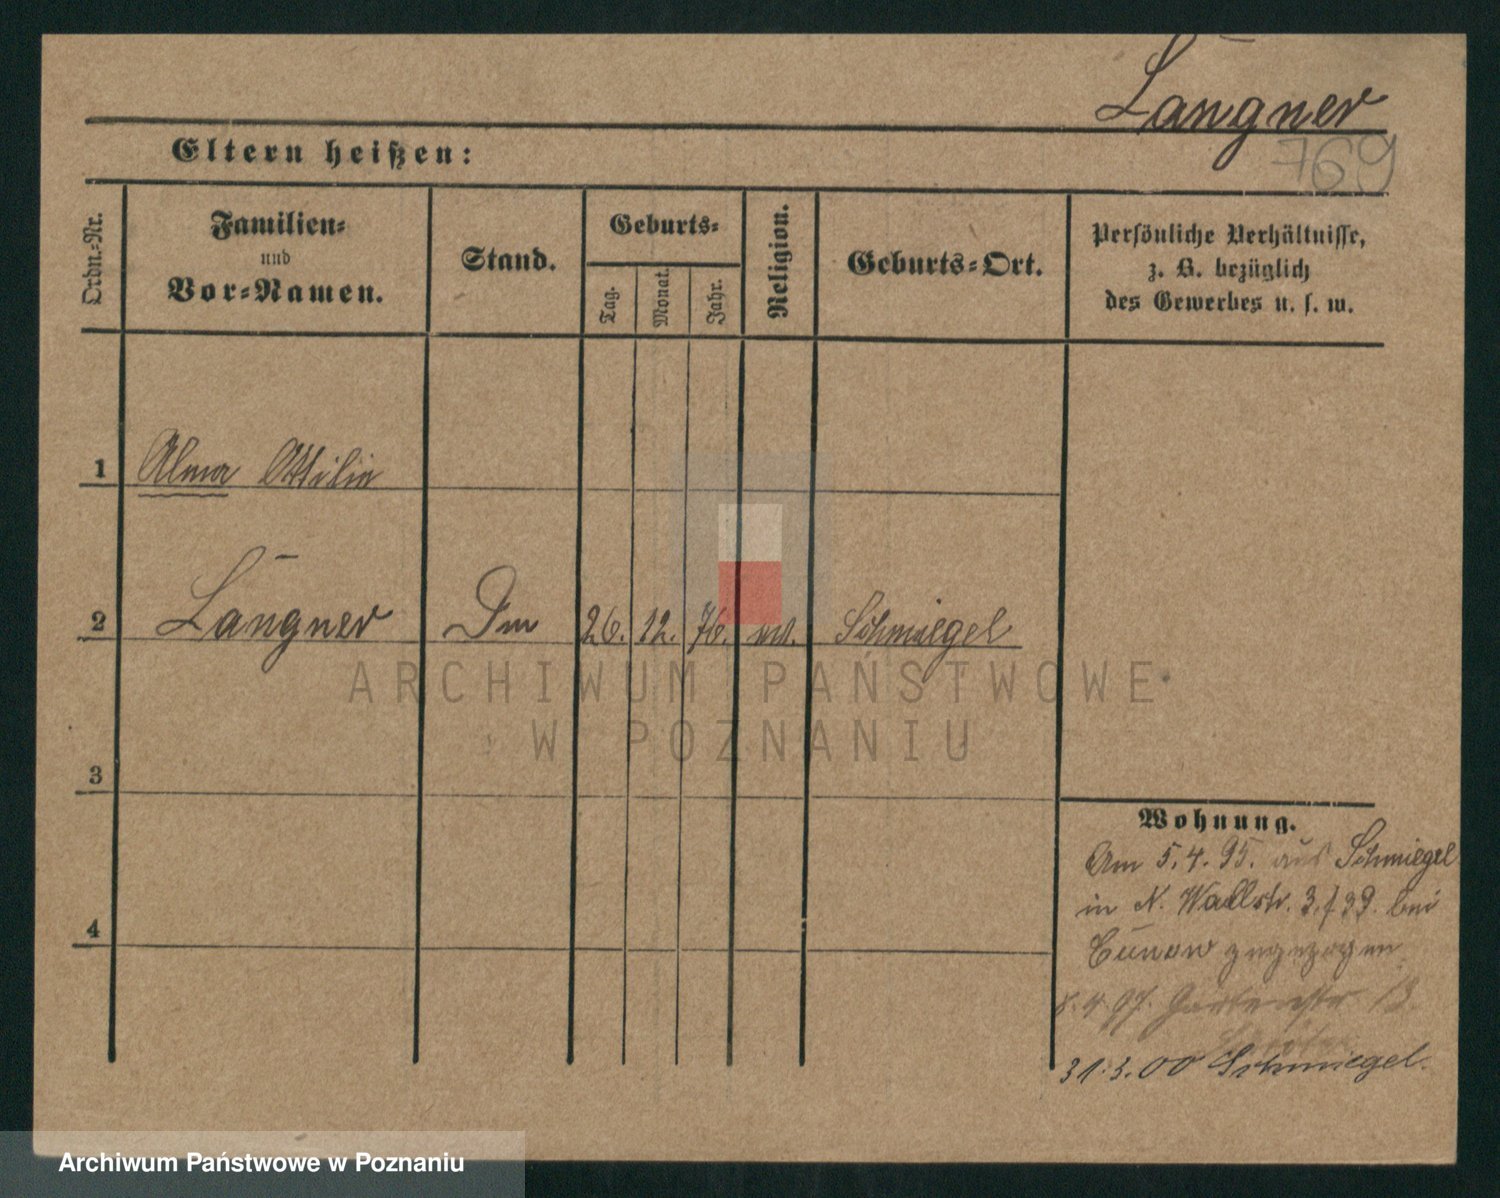 Langner
769
Eltern heißen:
Ordn.-Nr.
Familien-
und
Vor-Namen.
Stand.
Geburts-
Tag.
Monat.
Jahr.
Religion.
Geburts-Ort.
Persönliche Verhältnisse,
z. B. bezüglich
des Gewerbes u. s. w.
1 Alma Ottilie
2 Langner 26. 12. 76. Schmiegel
3
4
Wohnung.
Am 5.4.95. aus Schmiegel
in N. Wallstr. bei
Cunow zugezogen
Gartenstr 13.
31.3.00 Schmiegel.
ARCHIWUM PAŃSTWOWE
W POZNANIU
Archiwum Państwowe w Poznaniu